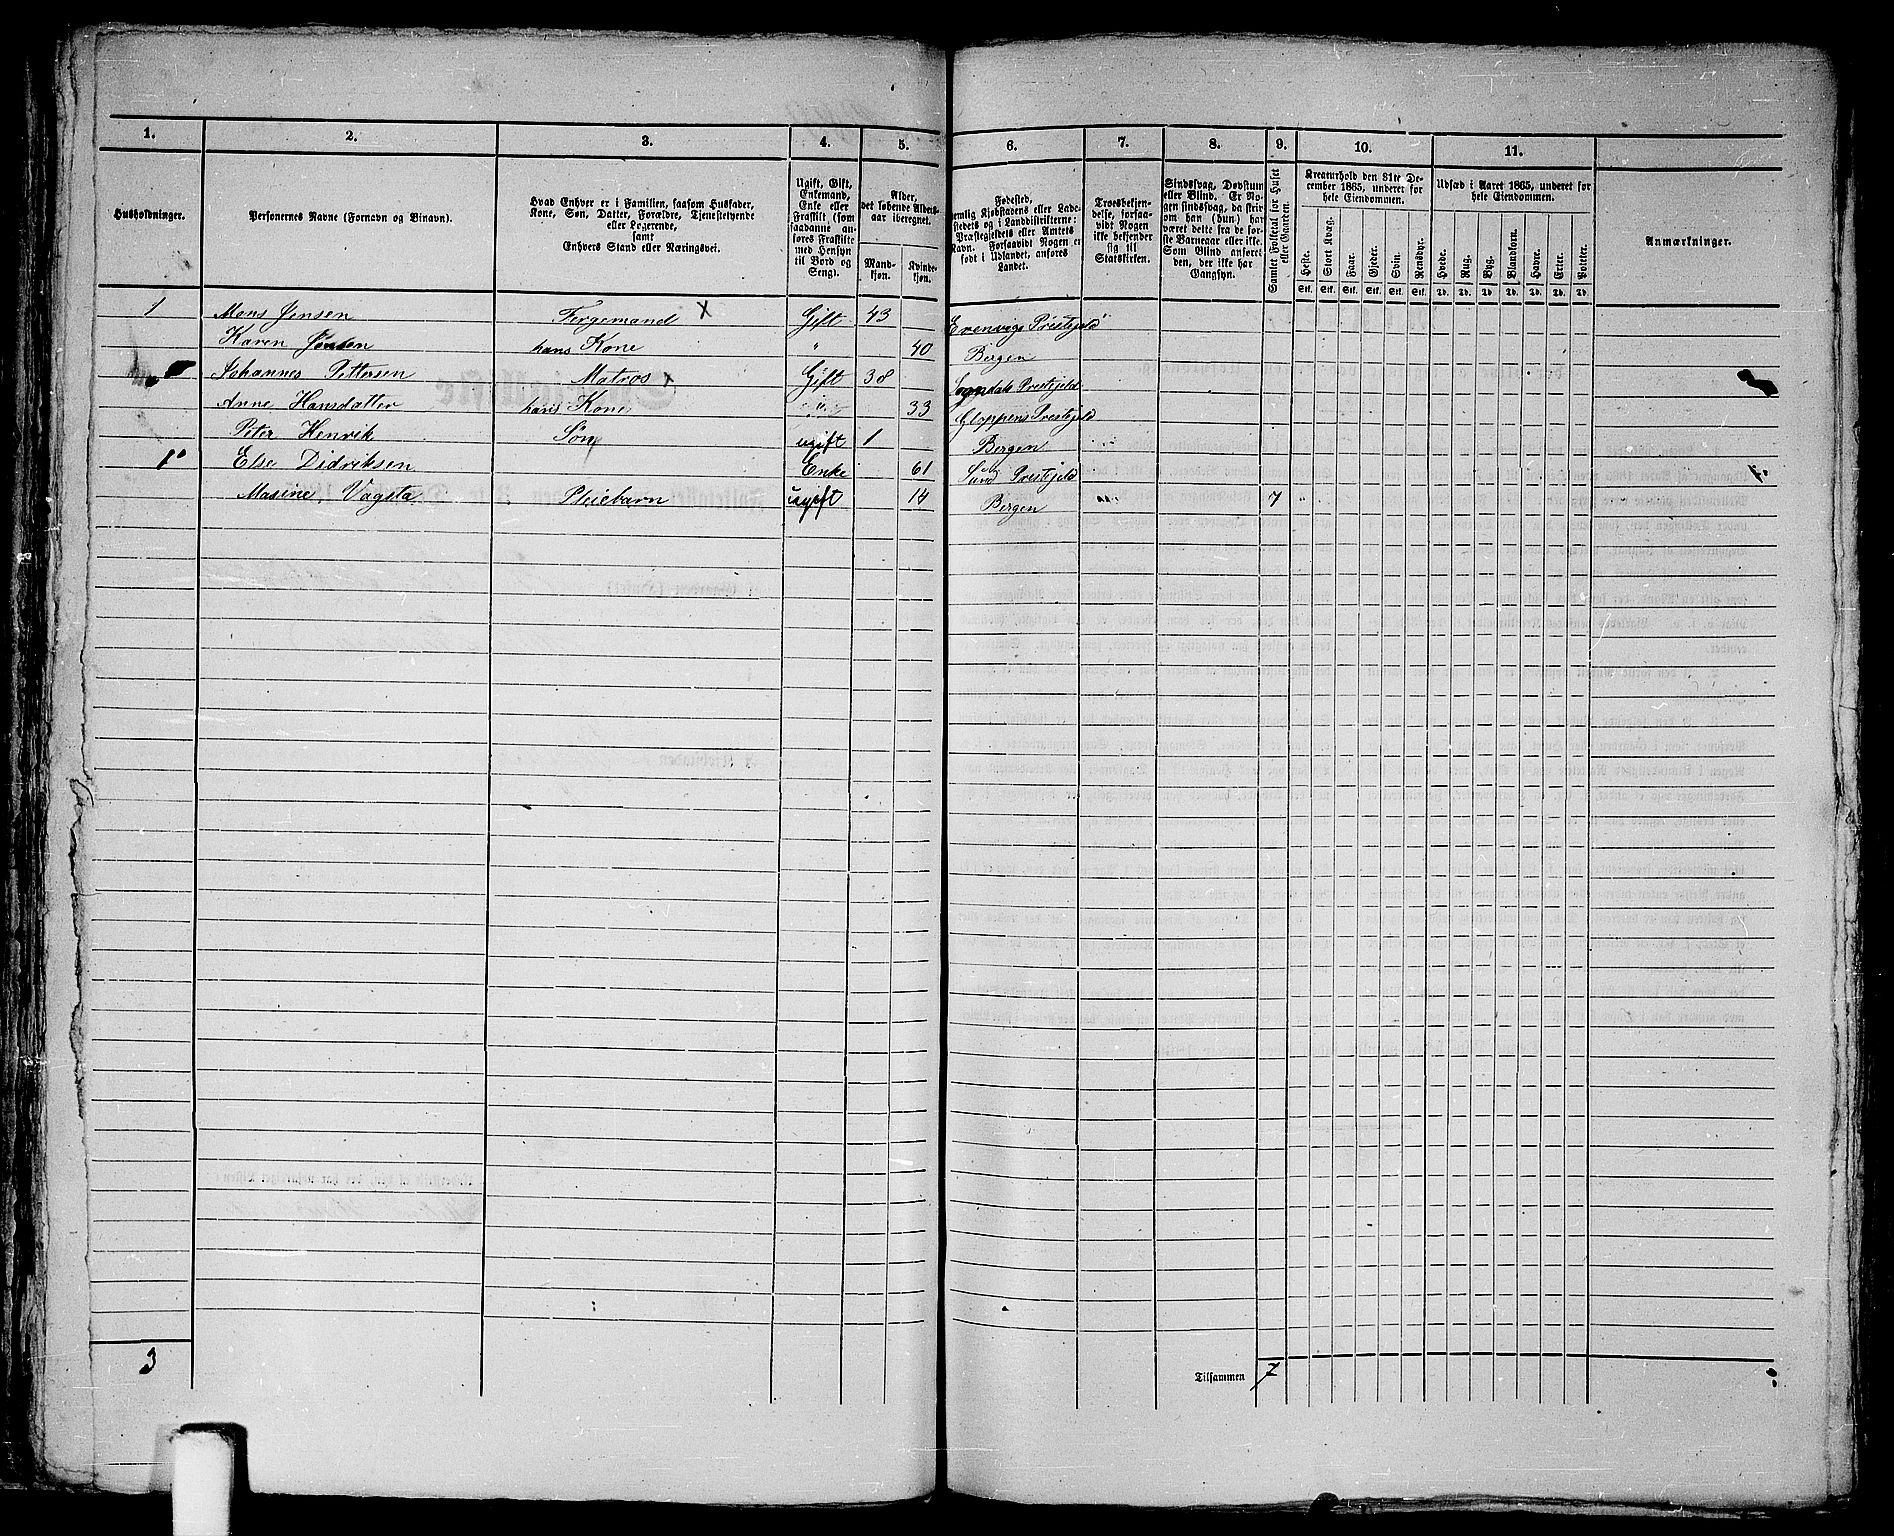 1. 2. 3. 4. 5. 6. 7. 8. 9. 10. 11.
Husholdninger.
Personernes Navne (Fornavn og Binavn).
Hvad Enhver er i Familien, saasom Husfader,
Kone, Søn, Datter, Forældre, Tjenestetyende
eller Logerende,
samt
Enhvers Stand eller Næringsvei.
Ugift, Gift,
Enkemand,
Enke eller
Fraskilt (som
saadanne an-
føres Fraskilte
med Hensyn
til Bord og
Seng).
Alder,
det løbende Alders-
aar iberegnet.
Mand-
kjøn.
Kvinde-
kjøn.
Fødested,
nemlig Kjøbstadens eller Lade-
stedets og i Landdistrikterne:
Præstegjeldets eller Amtets
Navn. Forsaavidt Nogen er
født i Udlandet, anføres
Landet.
Troesbekjen-
delse, forsaa-
vidt Nogen
ikke bekjender
sig til
Statskirken.
Sindssvag, Døvstum
eller Blind. Er No-
gen sindssvag, da skrives
om han (hun) har
været dette fra de før-
ste Barneaar eller ikke.
Som Blind anføres
den, der ikke har
Gangsyn.
Samlet Folketal for Huset
eller Gaarden.
Kreaturhold den 31te De-
cember 1865, underet for
hele Eiendommen.
Heste. Stort Kvæg. Faar. Gjeder. Svin. Rensdyr.
Stk. Stk. Stk. Stk. Stk. Stk.
Udsæd i Aaret 1865, underet for
hele Eiendommen.
Hvede. Rug. Byg. Blandkorn. Havre. Erter. Poteter.
Td. Td. Td. Td. Td. Td. Td.
Anmærkninger.
1 Mons Jensen Fergemand x Gift 43 Evenvigs Prestejeld
Karen hans Kone " 40 Bergen
Johannes Pettersen Matros x Gift 38 Sogndals Prestejeld
Anne Hansdatter hans Kone " 33 Gloppens Prestejeld
Peter Henrik Søn ugift 1 Bergen
1 Else Didriksen Enke 61 Sund Prestejeld
Masine Vagsta Pleiebarn ugift 14 Bergen 7
3 Tilsammen 7